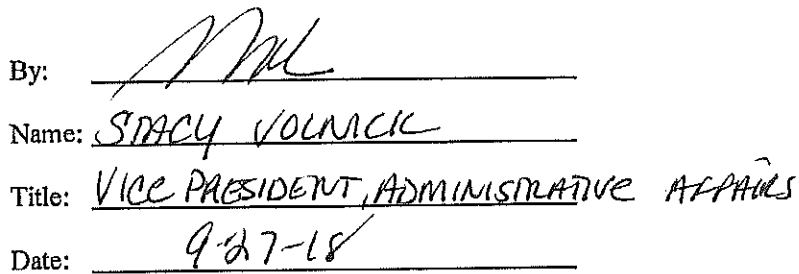 By:
Name: STACY VOLNICK
Title: VICE PRESIDENT, ADMINISTRATIVE AFFAIRS
Date: 9-27-18